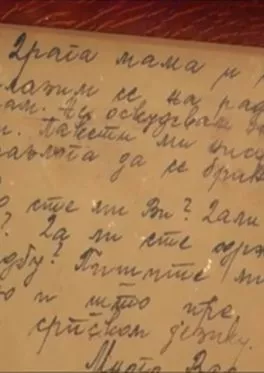 Драга мама и
лажим се на рад
ам. Не оскудевам
и. Пакети ми нису
разлога да се брин
сте ли Ви? Дали
? Да ли сте
одбу? Пишите ми
о и што пре,
српском језику.
Много Вас